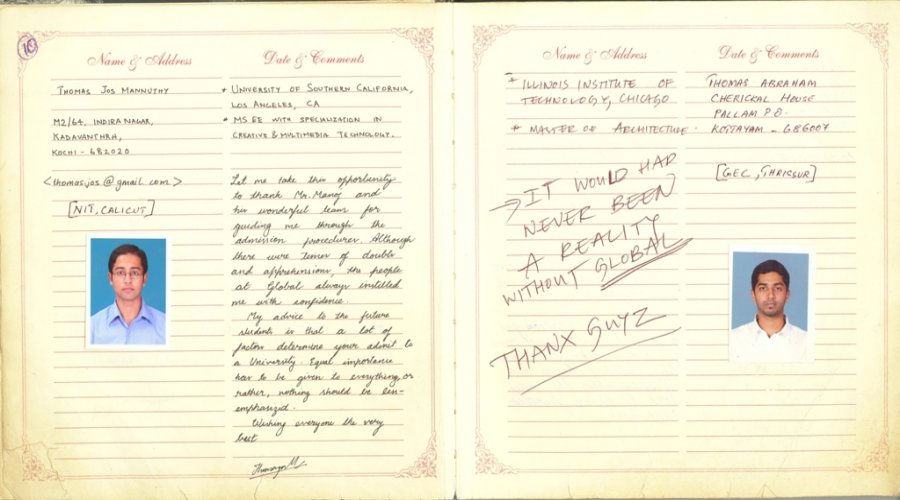 10
Name & Address
Date & Comments
Thomas Jos Mannuthy
M2/64, Indira Nagar,
Kadavanthra,
Kochi - 682020
<thomasjos@gmail.com>
[NIT, Calicut]
* University of Southern California,
Los Angeles, CA
* MS EE with specialization in
Creative & Multimedia Technology.
Let me take this opportunity
to thank Mr. Manoj and
his wonderful team for
guiding me through the
admission procedures. Although
there were times of doubts
and apprehensions, the people
at Global always instilled
me with confidence.
My advice to the future
students is that a lot of
factors determine your admit to
a University. Equal importance
has to be given to everything, or
rather, nothing should be less-
emphasized.
Wishing everyone the very
best
Name & Address
Date & Comments
* Illinois Institute of
Technology, Chicago
* Master of Architecture.
→ IT WOULD HAD
NEVER BEEN
A REALITY
WITHOUT GLOBAL
THANX GUYZ
Thomas Abraham
Cherickal House
Pallam P.O.
Kottayam - 686007
[GEC, Thrissur]